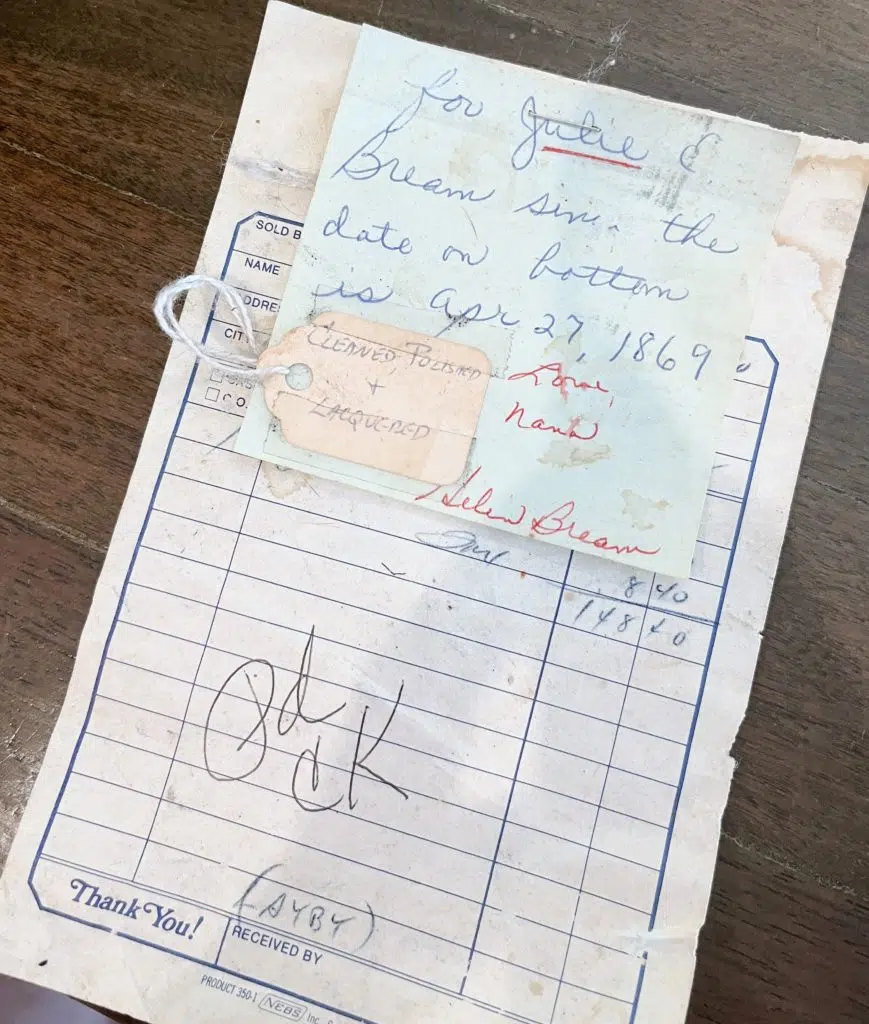 for Julie E
Bream sinc. the
date on bottom
is Apr 27, 1869
Love,
Nana
Helen Bream
CLEANED, POLISHED
+
LACQUERED
SOLD B
NAME
ADDRE
CIT
CAS
C.O.
8 40
148 40
Pd
CK
(LAYBY)
Thank You!
RECEIVED BY
PRODUCT 350-1 NEBS Inc.